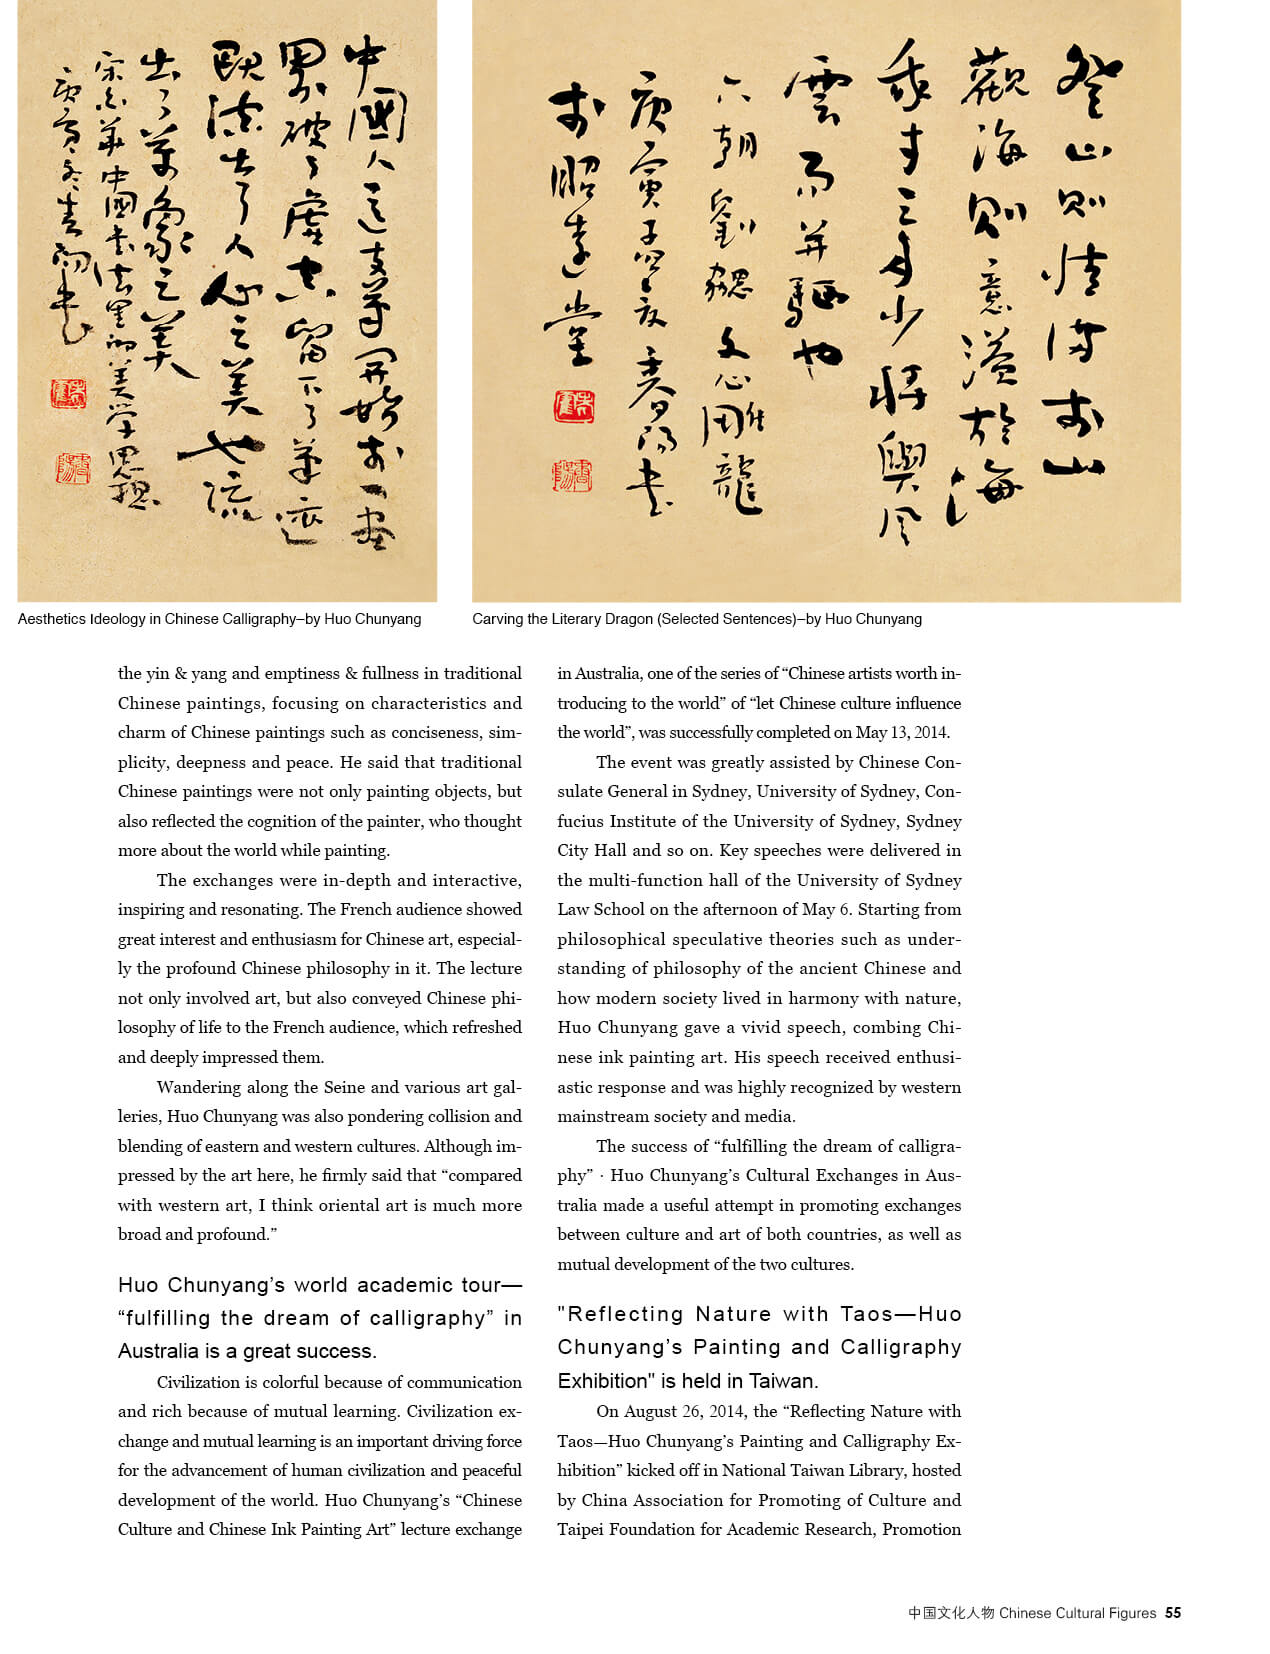 中國人這支筆開始於一畫
界破了虛空留下了筆迹
既流出了人心之美也流
出了萬象之美
宗白華中國書法里的美学思想
庚寅冬春陽書
登山則情滿於山
觀海則意溢於海
我才之多少將與風
雲而并驅也
六朝劉勰文心雕龍
庚寅子夜春陽書
於昭遠堂
Aesthetics Ideology in Chinese Calligraphy–by Huo Chunyang
Carving the Literary Dragon (Selected Sentences)–by Huo Chunyang
the yin & yang and emptiness & fullness in traditional
Chinese paintings, focusing on characteristics and
charm of Chinese paintings such as conciseness, sim-
plicity, deepness and peace. He said that traditional
Chinese paintings were not only painting objects, but
also reflected the cognition of the painter, who thought
more about the world while painting.
The exchanges were in-depth and interactive,
inspiring and resonating. The French audience showed
great interest and enthusiasm for Chinese art, especial-
ly the profound Chinese philosophy in it. The lecture
not only involved art, but also conveyed Chinese phi-
losophy of life to the French audience, which refreshed
and deeply impressed them.
Wandering along the Seine and various art gal-
leries, Huo Chunyang was also pondering collision and
blending of eastern and western cultures. Although im-
pressed by the art here, he firmly said that “compared
with western art, I think oriental art is much more
broad and profound.”
Huo Chunyang’s world academic tour—
“fulfilling the dream of calligraphy” in
Australia is a great success.
Civilization is colorful because of communication
and rich because of mutual learning. Civilization ex-
change and mutual learning is an important driving force
for the advancement of human civilization and peaceful
development of the world. Huo Chunyang’s “Chinese
Culture and Chinese Ink Painting Art” lecture exchange
in Australia, one of the series of “Chinese artists worth in-
troducing to the world” of “let Chinese culture influence
the world”, was successfully completed on May 13, 2014.
The event was greatly assisted by Chinese Con-
sulate General in Sydney, University of Sydney, Con-
fucius Institute of the University of Sydney, Sydney
City Hall and so on. Key speeches were delivered in
the multi-function hall of the University of Sydney
Law School on the afternoon of May 6. Starting from
philosophical speculative theories such as under-
standing of philosophy of the ancient Chinese and
how modern society lived in harmony with nature,
Huo Chunyang gave a vivid speech, combing Chi-
nese ink painting art. His speech received enthusi-
astic response and was highly recognized by western
mainstream society and media.
The success of “fulfilling the dream of calligra-
phy” · Huo Chunyang’s Cultural Exchanges in Aus-
tralia made a useful attempt in promoting exchanges
between culture and art of both countries, as well as
mutual development of the two cultures.
"Reflecting Nature with Taos—Huo
Chunyang’s Painting and Calligraphy
Exhibition" is held in Taiwan.
On August 26, 2014, the “Reflecting Nature with
Taos—Huo Chunyang’s Painting and Calligraphy Ex-
hibition” kicked off in National Taiwan Library, hosted
by China Association for Promoting of Culture and
Taipei Foundation for Academic Research, Promotion
中国文化人物 Chinese Cultural Figures 55